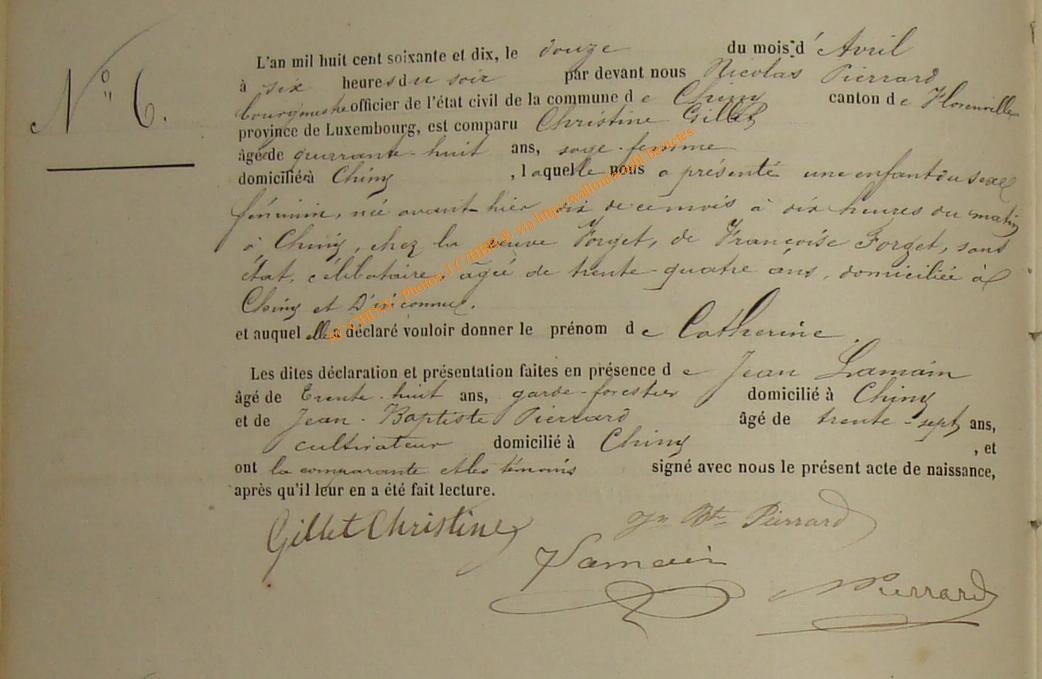 N° 6.
L'an mil huit cent soixante et dix, le douze du mois d' Avril
à six heures du soir par devant nous Nicolas Pierrard
bourgmestre officier de l'état civil de la commune de Chiny canton de Florenville
province de Luxembourg, est comparu Christine Gillet
âgée de quarrante-huit ans, sage-femme
domiciliée à Chiny, laquelle nous a présenté une enfant du sexe
féminin, née avant-hier dix de ce mois à dix heures du matin
à Chiny, chez la veuve Forget, de Françoise Forget, sans
état, célibataire, agée de trente-quatre ans, domiciliée à
Chiny et D'inconnu.
et auquel elle a déclaré vouloir donner le prénom de Catherine.
Les dites déclaration et présentation faites en présence de Jean Lamain
âgé de trente-huit ans, garde-forestier domicilié à Chiny
et de Jean-Baptiste Pierrard âgé de trente-sept ans,
cultivateur domicilié à Chiny, et
ont la comparante et les témoins signé avec nous le présent acte de naissance,
après qu'il leur en a été fait lecture.
Gillet Christine Jn Bte Pierrard
Lamain NPierrard